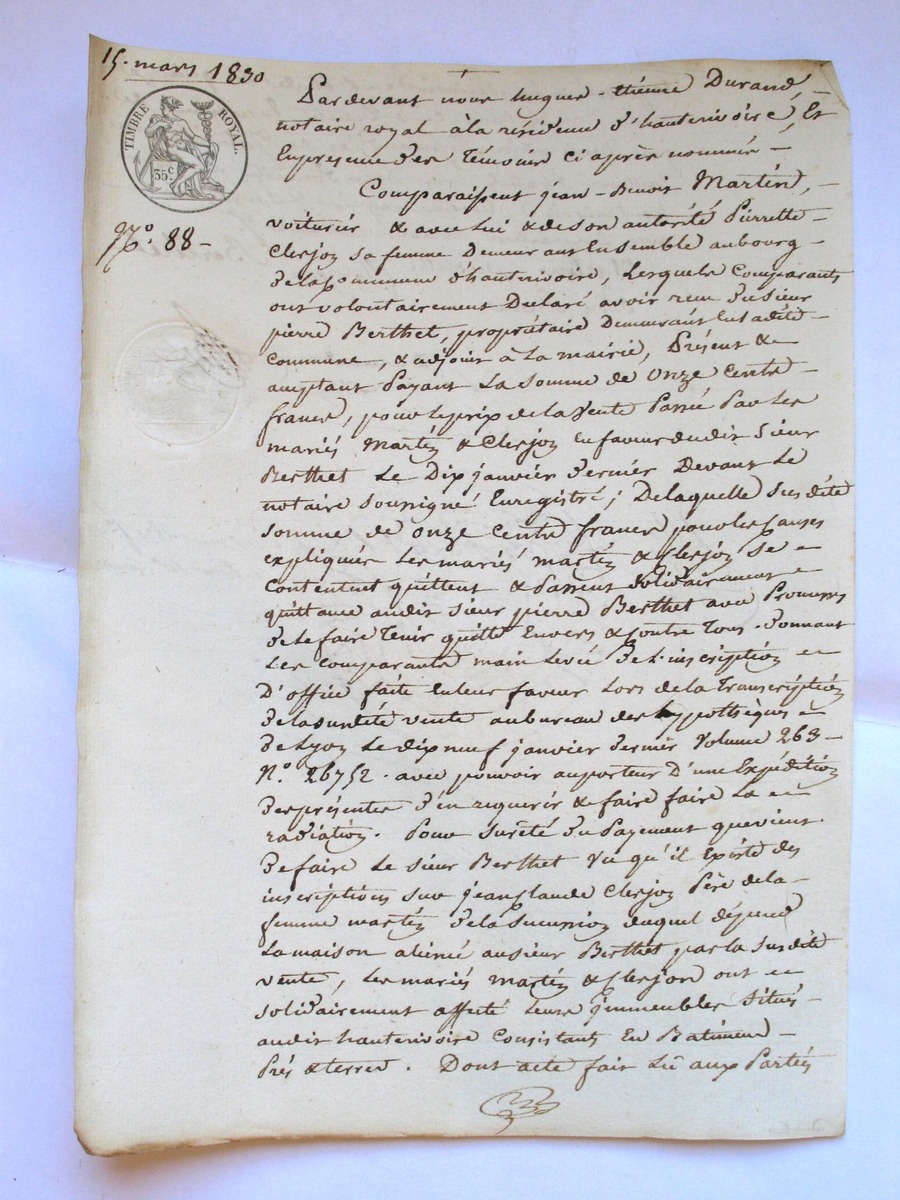 15. mars 1830
TIMBRE ROYAL.
35 c.
N.o 88 -
Pardevant nous hugues - étienne Durand, -
notaire royal à la résidence d'hauterivoire, Et
En presence des Témoins ci après nommés -
Comparaissent jean - Benoit Martin, -
voiturier & avec Lui & de son autorité Pierrette -
Clerjon sa femme Demeurans Ensemble au bourg -
de la commune d'hauterivoire, Lesquels Comparants
ont volontairement Déclaré avoir reçu du sieur
pierre Berthet, propriétaire Demeurant En ladite -
Commune, & adjoint à La mairie, Présent & -
acceptant Payant La Somme de Onze Cents -
francs, pour le prix de la Vente Passée Par Les
mariés Martin & Clerjon En faveur dudit Sieur
Berthet Le Dix janvier dernier Devant Le
notaire soussigné Enregistré; De laquelle Susdite
somme de onze Cents francs pour les Causes
expliquées Les mariés martin & Clerjon se -
Contentent quittent & Passent Solidairement -
quittance audit sieur pierre Berthet avec Promesses
de le faire Tenir quitte Envers & Contre Tous. donnant
Les Comparants main Levée de L'inscription -
D'office faite En leur faveur Lors de la Transcription
de la susdite vente au bureau des hypothèques -
De Lyon Le dix neuf janvier dernier Volume 263 -
N.o 26752. avec pouvoir au porteur D'une Expédition
des présentes d'en requerir & faire faire La -
radiation. Pour Sureté du Payement que vient
De faire Le sieur Berthet Vu qu'il Existe des
inscriptions sur jean Claude Clerjon Père de la -
femme martin de la Succession duquel dépend
La maison aliénée au sieur Berthet par la susdite
vente, Les mariés martin & Clerjon ont -
solidairement affecté Leurs jmmeubles Situés -
audit hauterivoire Consistants En Batiments -
Prés & terres. Dont acte fait Lu aux Parties